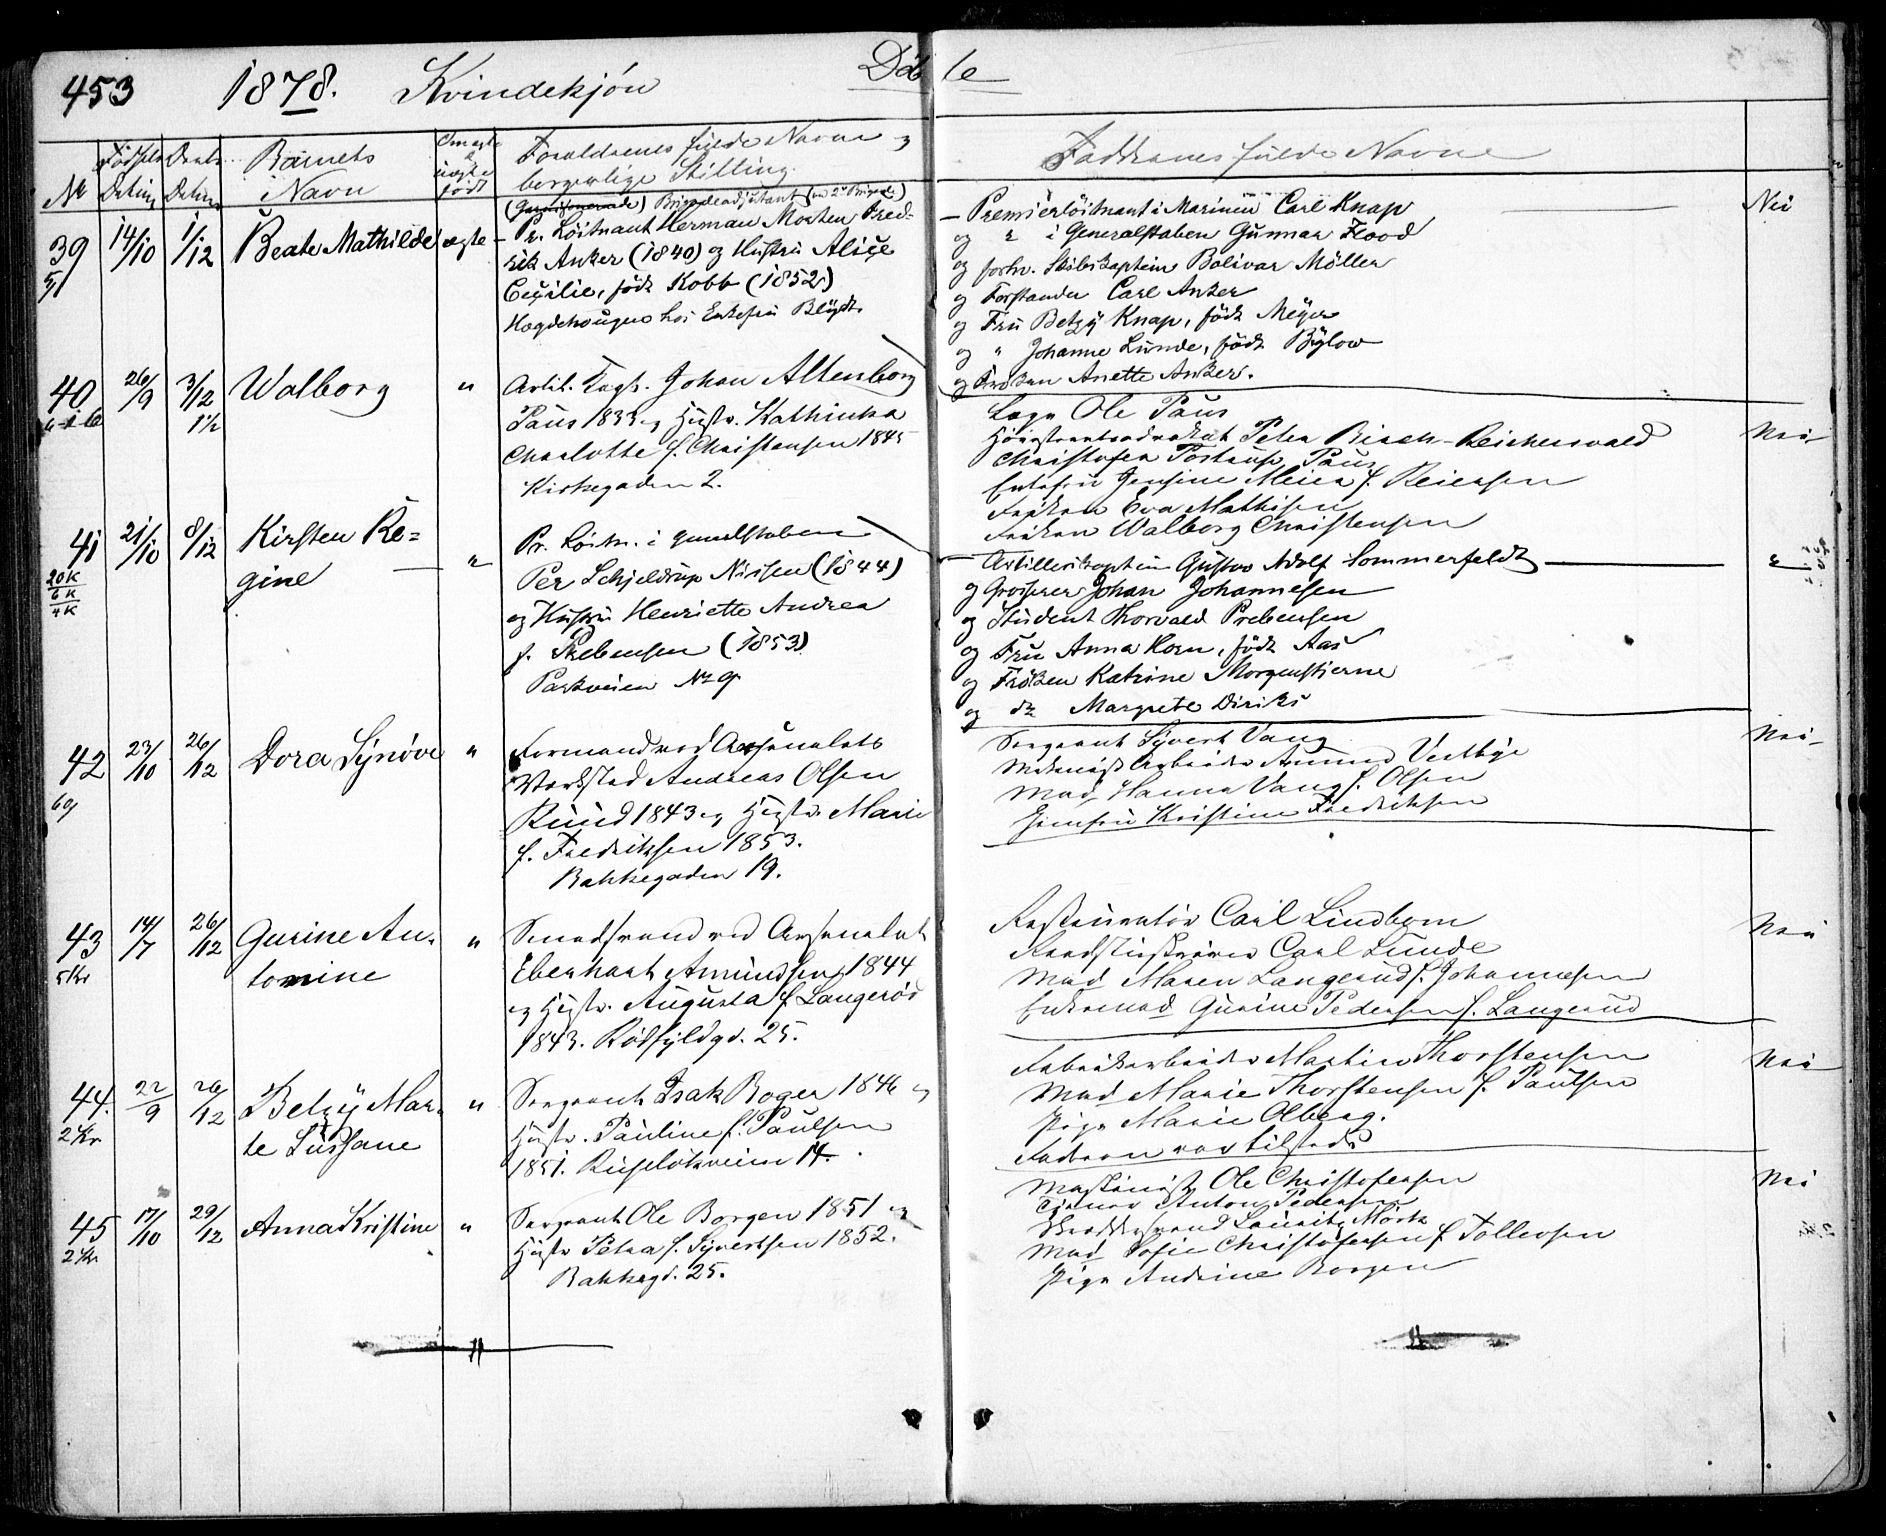 453 1878. Kvindekjøn Døbte
No Fødsels Datum Daabs Datum Barnets Navn Om ægte e uægte født Forældrenes fulde Navne og borgerlige Stilling. Faddernes fulde Navne
39 14/10 1/12 Beate Mathilde ægte
(Garnisonerende) Brigadeadjutant ved 2den Brigade
Pr. Löitnant Herman Morten Fred-
rik Anker (1840) og Hustru Alice
Cecilie, født Kobb (1852)
Hægdehougen hos Enkefru Blydt.
Premierlöitnant i Marinen Carl Knap Nei
og " i Generalstaben Gunnar Flood
og forhv. Skibskaptein Bolivar Möller
og Forstander Carl Anker
og Fru Betzy Knap, født Meyer
og " Johanne Lunde, født Bylow
og Frøken Anette Anker.
40 26/9 3/12 Walborg "
1½
Artil. Kapt. Johan Altenborg
Paus 1833 og Hustr. Kathinka
Charlotte f. Christensen 1845
Kirkegaden 2.
Læge Ole Paus
Høiestretsadvokat Peter Bisch-Reichenwald Nei
Christofer Tostrup Paus
Enkefru Jensine Meier f. Reiersen
Frøken Eva Mathisen
Frøken Walborg Christensen
41 21/10 8/12 Kirsten Re=
gine "
20 K
6 K
4 K
Pr. Löitn. i Generalstaben
Per Schjeldrup Nissen (1844)
og Hustru Henriette Andrea
f. Prebensen (1853)
Parkveien No 9
Artillerikaptein Gustav Adolf Sommerfeldt "
og Grosserer Johan Johannesen
og Student Thorvald Prebensen
og Fru Anna Korn, født Aas
og Frøken Katrine Morgenstierne
og do Margrete Diriks
42 23/10 26/12 Dora Synöve "
Formand ved Arsenalets
Værksted Andreas Olsen
Ruud 1843 og Hustr. Marie
f. Fredriksen 1853.
Bakkegaden 19.
Sergeant Syvert Vang Nei
Mekanisk Arbeider Amund Vestbye
Mad. Hanna Vang f. Olsen
Jomfru Kristine Fredriksen
43 14/7 26/12 Gurine An-
tomine "
5 Kr
Smedsvend ved Arsenalet
Eberhart Amundsen 1844
og Hustr. Augusta f. Langerös
1843. Rödfyldgd. 25.
Restauratör Carl Lindbom Nei
Carl Lunde
Mad Maren Langerud f. Johannesen
Enkemad Gurine Pedersen f. Langerud
44. 22/9 26/12 Betzy Mar-
te Sussane "
2 Kr.
Sergeant Isak Boger 1846 og
Hustr. Pauline f. Paulsen
1851. 14.
Fabrikarbeider Martin Thorstensen Nei
Mad Marie Thorstensen f. Paulsen
Pige Marie Olberg.
Faderen var tilstede
45 17/10 29/12 Anna Kristine "
2 Kr.
Sergeant Ole Borgen 1851 og
Hustr Petra f. Syvertsen 1852.
Bakkegd. 25.
Maskinist Ole Christofersen Nei
Tjener Anton Pedersen
Skreddersvend Lauritz Mörk
Mad Sofie Christofersen f Tollevsen
Pige Andrine Borgen